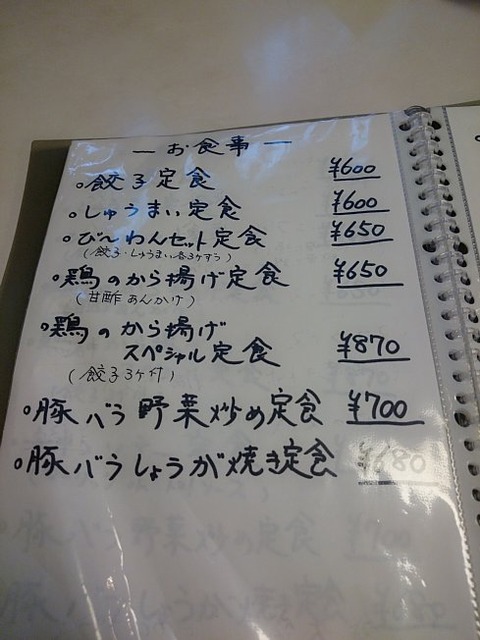 — お食事 —
。餃子定食 ¥600
。しゅうまい定食 ¥600
。びーわんセット定食 ¥650
(餃子・しゅうまい各3ケずつ)
。鶏のから揚げ定食 ¥650
(甘酢あんかけ)
。鶏のから揚げ
スペシャル定食 ¥870
(餃子3ケ付)
。豚バラ野菜炒め定食 ¥700
。豚バラしょうが焼き定食 ¥680